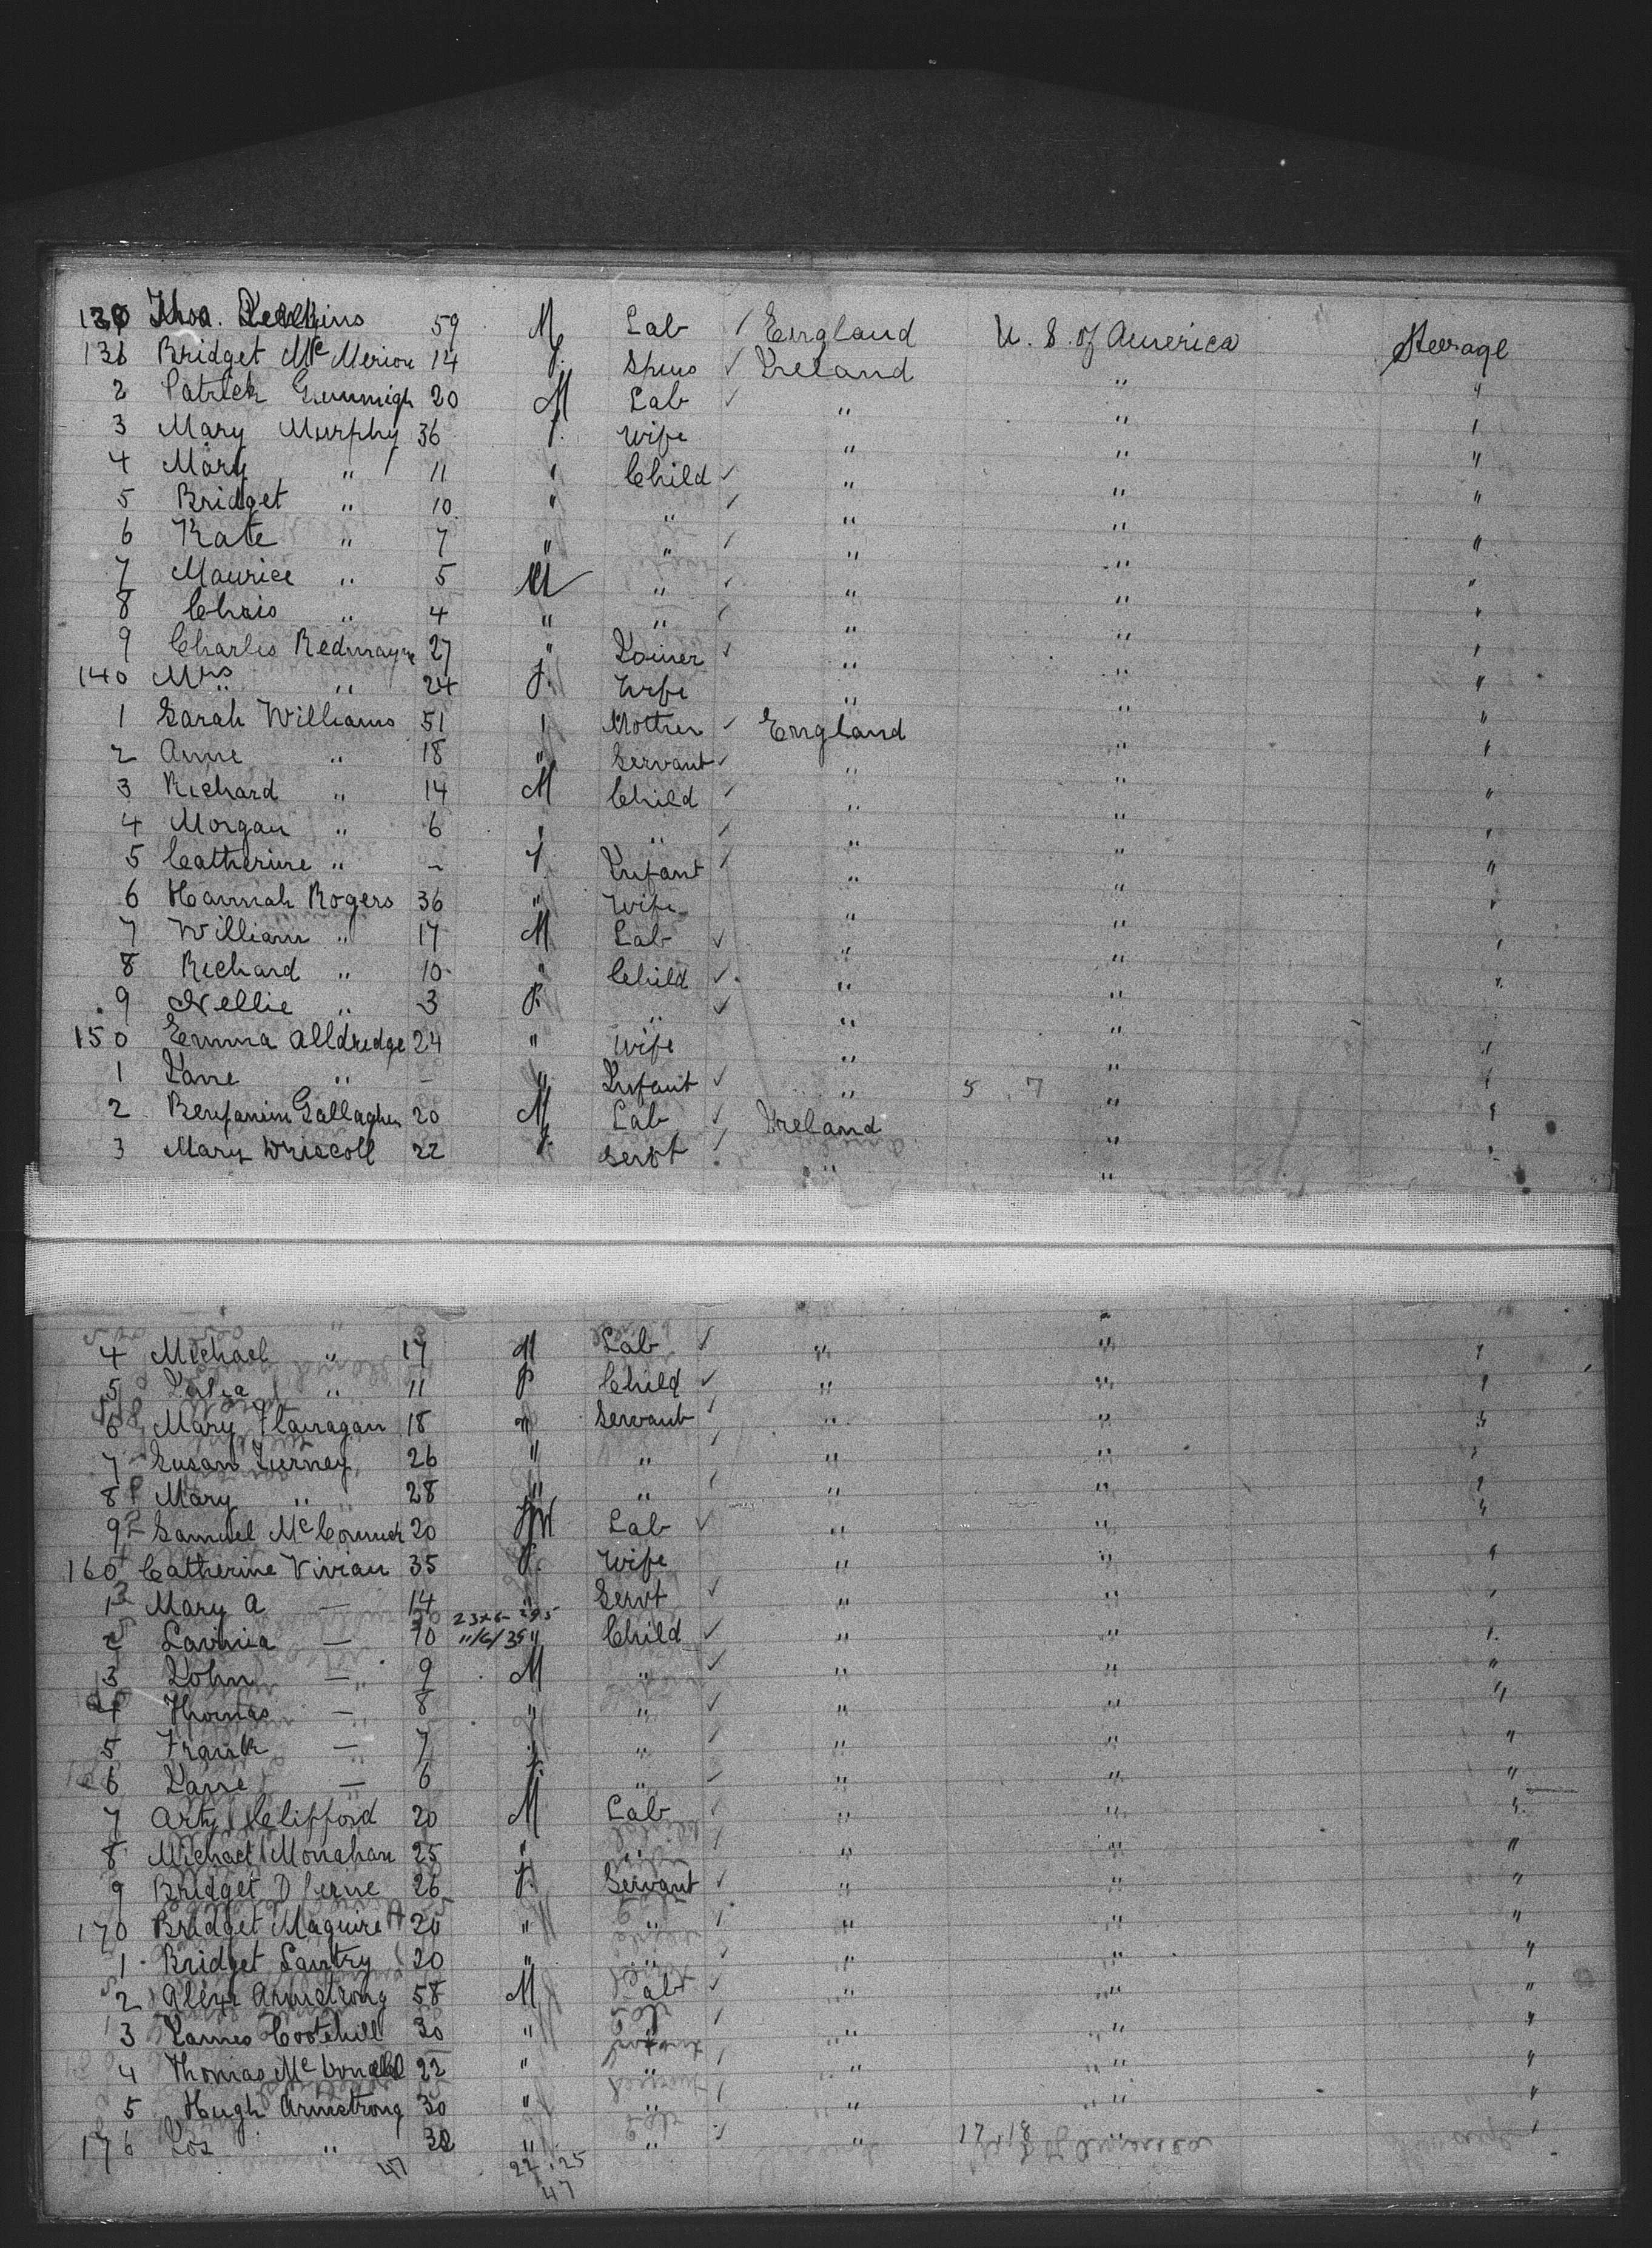 130 Thos. Perkins 59 M Lab / England U. S. of America Steerage
131 Bridget Mc 14 f. Spins ✓ Ireland " "
2 Patrick 20 M Lab ✓ " " "
3 Mary Murphy 36 f. Wife " " "
4 Mary " 11 " Child ✓ " " "
5 Bridget " 10 " " ✓ " " "
6 Kate " 7 " " ✓ " " "
7 Maurice " 5 M " ✓ " " "
8 Chris " 4 " " ✓ " " "
9 Charles Redmayne 27 " Joiner ✓ " " "
140 Mrs " 24 f. Wife " " "
1 Sarah Williams 51 " Mother ✓ England " "
2 Anne " 18 " Servant ✓ " " "
3 Richard " 14 M Child ✓ " " "
4 Morgan " 6 " " ✓ " " "
5 Catherine " - f. Infant ✓ " " "
6 Hannah Rogers 36 " Wife " " "
7 William " 17 M Lab ✓ " " "
8 Richard " 10 " Child ✓ " " "
9 Nellie " 3 f. " ✓ " " "
150 Emma Alldredge 24 " Wife " " "
1 Jane " - " Infant ✓ " 5 7 " "
2 Benjamin Gallagher 20 M Lab ✓ Ireland " "
3 Mary Driscoll 22 f. Servt ✓ " " "
4 Michael " 17 M Lab ✓ " " "
5 " 11 f Child ✓ " " "
6 Mary Flanagan 18 " Servant ✓ " " "
7 Susan Tierney 26 " " ✓ " " "
8 Mary " 28 " " ✓ " " "
9 Samuel 20 M Lab ✓ " " "
160 Catherine Vivian 35 f. Wife " " "
1 Mary A — 14 " Servt ✓ " " "
2 Lavinia — 10 " Child ✓ " " "
3 John — 9 M " ✓ " " "
4 Thomas — 8 " " ✓ " " "
5 Frank — 7 " " ✓ " " "
6 Jane — 6 f. " ✓ " " "
7 Arty Clifford 20 M Lab ✓ " " "
8 Michael Monahan 25 " " ✓ " " "
9 Bridget 26 f. Servant ✓ " " "
170 Bridget Maguire 20 " " ✓ " " "
1 Bridget Lantry 20 " " ✓ " " "
2 Alexr Armstrong 58 M Lab ✓ " " "
3 James Cootehill 30 " " ✓ " " "
4 Thomas McDonald 22 " " ✓ " " "
5 Hugh Armstrong 30 " " ✓ " " "
176 Jos " 32 " " ✓ " 17.18 " "
47 22.25
47